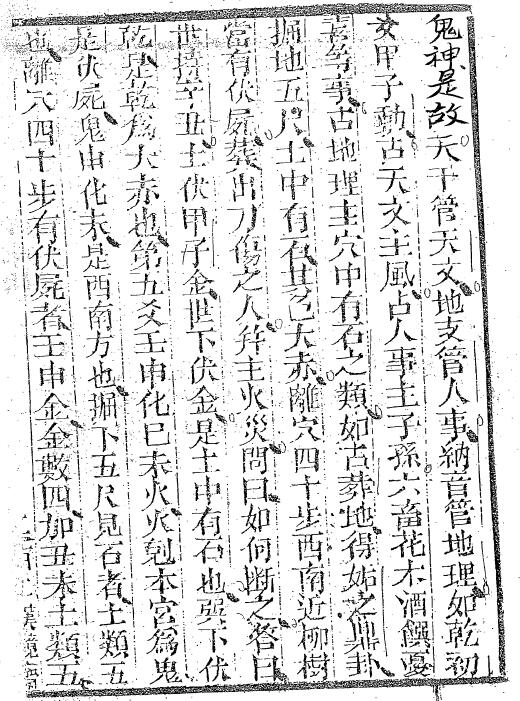 鬼神是故天干管天文地支管人事納音管地理如乾初
爻甲子動占天文主風占人事主子孫六畜花木酒饌憂
喜等事占地理主穴中有石之類如占葬地得姤之鼎卦
掘地五尺土中有石其色大赤離穴四十步西南近柳樹
當有伏屍葬出刀傷之人并主火災問曰如何斷之答曰
世持辛丑土伏甲子金世下伏金是土中有石也巽下伏
乾是乾爲大赤也第五爻壬申化巳未火火剋本宮爲鬼
是伏屍鬼申化未是西南方也掘下五尺見石者土類五
也離穴四十步有伏屍者壬申金金數四加丑未土類五